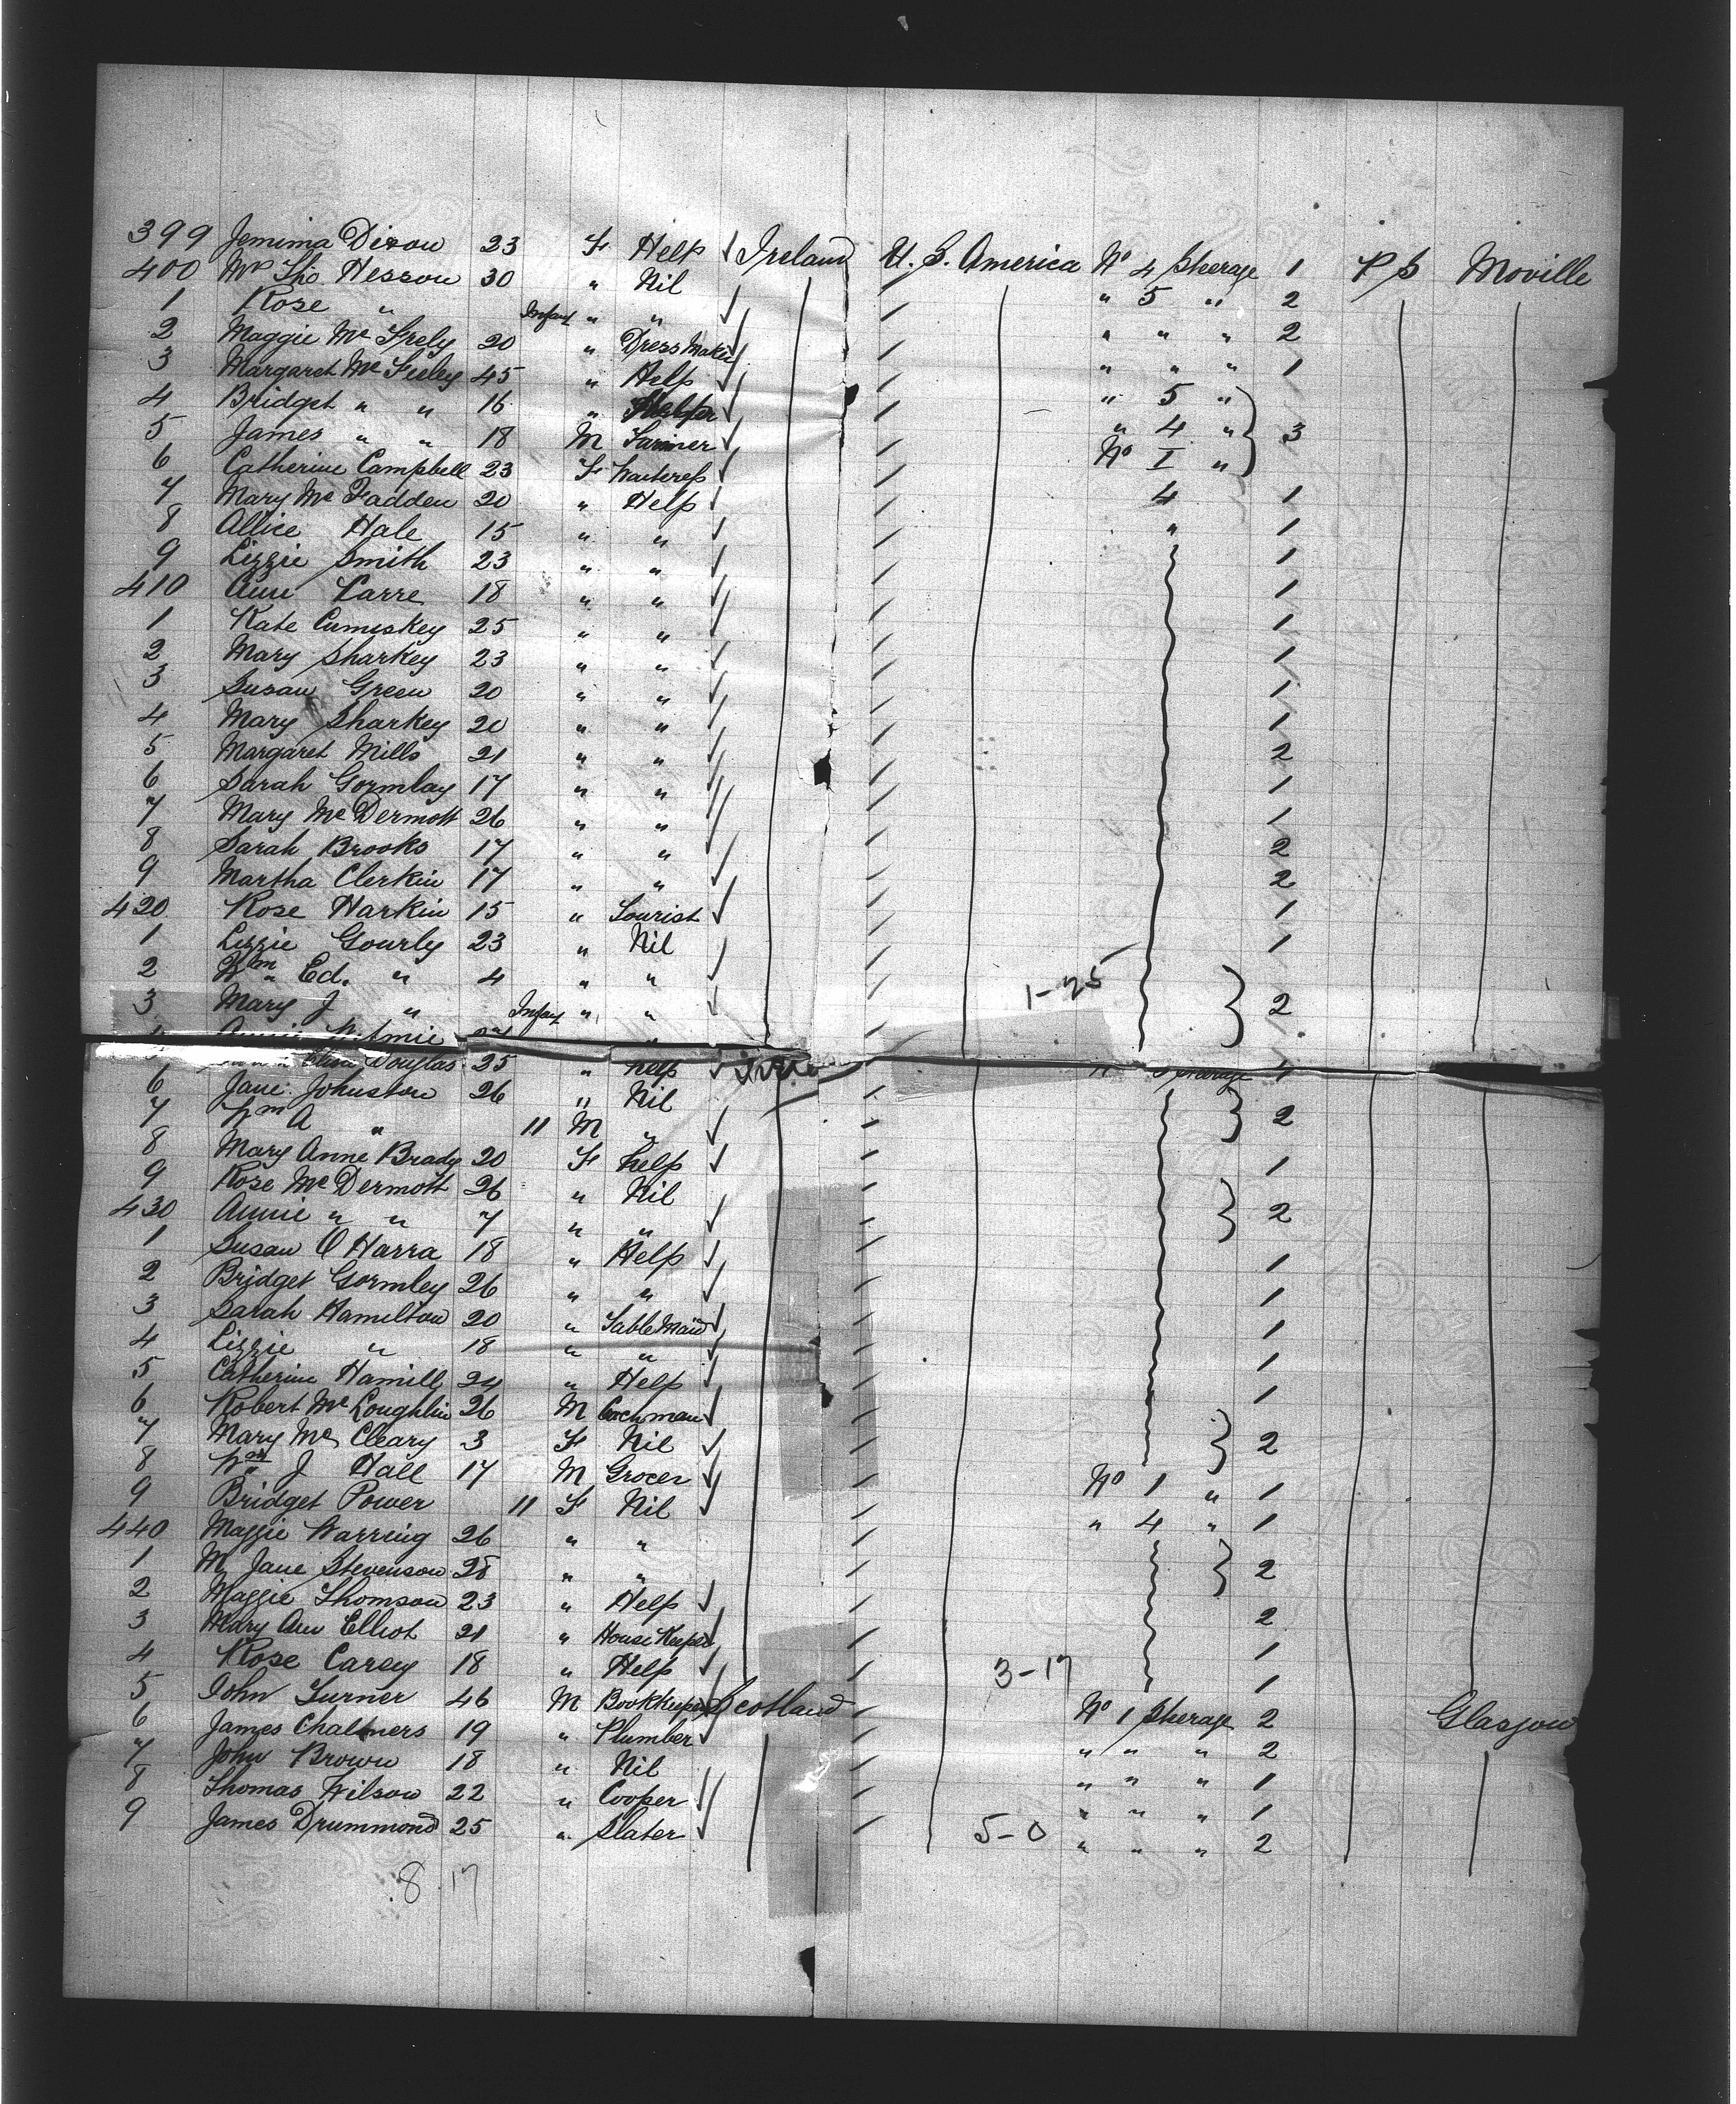 399 Jemima Dixon 23 F Help Ireland U. S. America No 4 Steerage 1 P S Moville
400 Mrs Tho Hesson 30 " Nil " 5 " 2
1 Rose " Infant " " " " " 2
2 Maggie Mc Feely 20 " Dress Maker " " " 1
3 Margaret Mc Feeley 45 " Help " 5 "
4 Bridget " " 16 " " 4 " 3
5 James " " 18 M Farmer No I "
6 Catherine Campbell 23 F Waitress 4 1
7 Mary Mc Fadden 20 " Help " 1
8 Allice Hale 15 " " 1
9 Lizzie Smith 23 " " 1
410 Ann Carre 18 " " 1
1 Kate Cumiskey 25 " " 1
2 Mary Sharkey 23 " " 1
3 Susan Green 20 " " 1
4 Mary Sharkey 20 " " 2
5 Margaret Mills 21 " " 1
6 Sarah Gormlay 17 " " 1
7 Mary Mc Dermott 26 " " 2
8 Sarah Brooks 17 " " 2
9 Martha Clerkin 17 " " 1
420 Rose Harkin 15 " Tourist 1
1 Lizzie Gourly 23 " Nil
2 Wm Ed. " 4 " " 1-25 2
3 Mary J " Infant " "
Douglas 25 " help
6 Jane Johnston 26 " Nil 2
7 Wm A " 11 M "
8 Mary Anne Brady 20 F help 1
9 Rose Mc Dermott 26 " Nil 2
430 Annie " " 7 " "
1 Susan O Harra 18 " Help 1
2 Bridget Gormley 26 " " 1
3 Sarah Hamilton 20 " Table Maid 1
4 Lizzie " 18 " " 1
5 Catherine Hamill 24 " Help 1
6 Robert Mc Loughlin 26 M Coachman 2
7 Mary Mc Cleary 3 F Nil
8 Wm J Hall 17 M Grocer No 1 " 1
9 Bridget Power 11 F Nil " 4 " 1
440 Maggie Warring 26 " " 2
1 M Jane Stevenson 28 " "
2 Maggie Thomson 23 " Help 2
3 Mary Ann Elliot 21 " House Keeper 1
4 Rose Carey 18 " Help 3-17 1
5 John Turner 46 M Bookkeeper Scotland No 1 Steerage 2 Glasgow
6 James Chalmers 19 " Plumber " " " 2
7 John Brown 18 " Nil " " " 1
8 Thomas Wilson 22 " Cooper " " " 1
9 James Drummond 25 " Slater 5-0 " " " 2
8 17